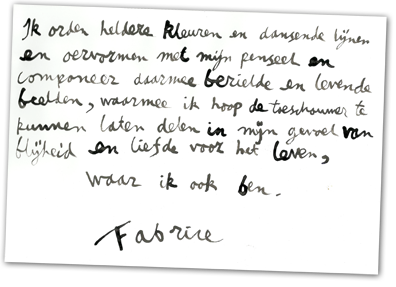 Ik orden heldere kleuren en dansende lijnen
en oervormen met mijn penseel en
componeer daarmee bezielde en levende
beelden, waarmee ik hoop de toeschouwer te
kunnen laten delen in mijn gevoel van
blijheid en liefde voor het leven,
waar ik ook ben.
Fabrice